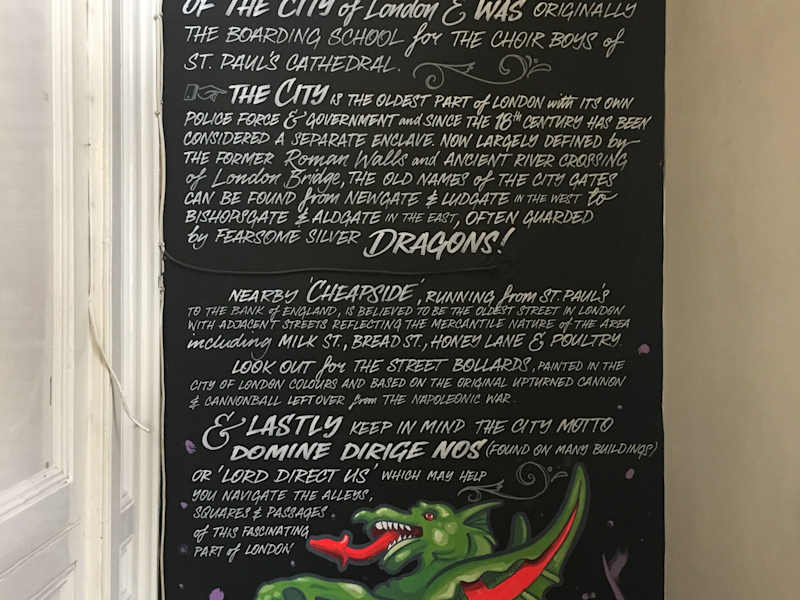 OF THE CITY of London & WAS ORIGINALLY
THE BOARDING SCHOOL for THE CHOIR BOYS of
ST. PAUL'S CATHEDRAL.
THE CITY IS THE OLDEST PART of LONDON with ITS OWN
POLICE FORCE & GOVERNMENT and SINCE THE 18th CENTURY HAS BEEN
CONSIDERED A SEPARATE ENCLAVE. NOW LARGELY DEFINED by
THE FORMER Roman Walls and ANCIENT RIVER CROSSING
of London Bridge, THE OLD NAMES of THE CITY GATES
CAN BE FOUND from NEWGATE & LUDGATE IN THE WEST to
BISHOPSGATE & ALDGATE IN THE EAST, OFTEN GUARDED
by FEARSOME SILVER DRAGONS!
NEARBY 'CHEAPSIDE', RUNNING from ST. PAUL'S
TO THE BANK of ENGLAND, IS BELIEVED TO BE THE OLDEST STREET IN LONDON
WITH ADJACENT STREETS REFLECTING THE MERCANTILE NATURE of THE AREA
including MILK ST., BREAD ST., HONEY LANE & POULTRY.
LOOK OUT for THE STREET BOLLARDS, PAINTED IN THE
CITY OF LONDON COLOURS AND BASED ON THE ORIGINAL UPTURNED CANNON
& CANNONBALL LEFT OVER from THE NAPOLEONIC WAR.
& LASTLY KEEP IN MIND THE CITY MOTTO
DOMINE DIRIGE NOS (FOUND ON MANY BUILDINGS)
OR 'LORD DIRECT US' WHICH MAY HELP
YOU NAVIGATE THE ALLEYS,
SQUARES & PASSAGES
of THIS FASCINATING
PART of LONDON